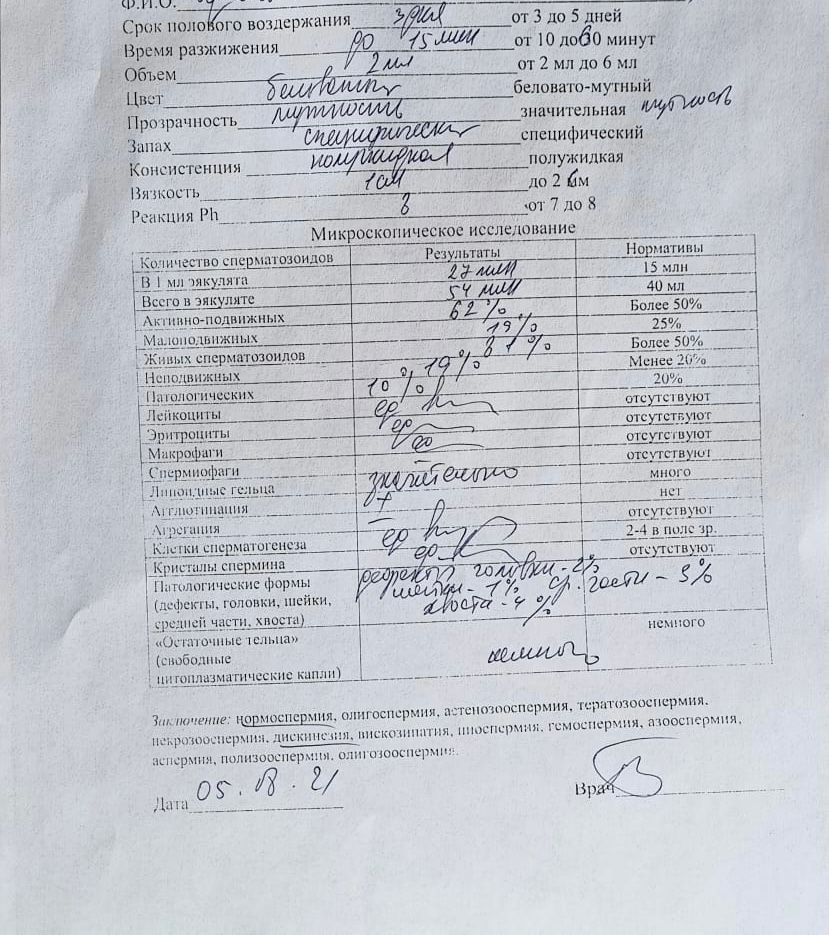 Ф.И.О.
Срок полового воздержания 3 дня от 3 до 5 дней
Время разжижения до 15 мин от 10 до 60 минут
Объем 2 мл от 2 мл до 6 мл
Цвет беловатый беловато-мутный
Прозрачность мутность значительная мутность
Запах специфический специфический
Консистенция полужидкая полужидкая
Вязкость 1 см до 2 см
Реакция Ph 8 от 7 до 8
Микроскопическое исследование
Количество сперматозоидов Результаты Нормативы
В 1 мл эякулята 27 млн 15 млн
Всего в эякуляте 54 млн 40 мл
Активно-подвижных 62% Более 50%
Малоподвижных 19% 25%
Живых сперматозоидов 81% Более 50%
Неподвижных 19% Менее 20%
Патологических 10% 20%
Лейкоциты ед отсутствуют
Эритроциты ед отсутствуют
Макрофаги ео отсутствуют
Спермиофаги отсутствуют
Липоидные тельца значительно много
Агглютинация + нет
Агрегация – отсутствуют
Клетки сперматогенеза ед 2-4 в поле зр.
Кристалы спермина ед отсутствуют
Патологические формы дефекты головки - 2%
(дефекты, головки, шейки, шейки - 1% ср. части - 3%
средней части, хвоста) хвоста - 4%
«Остаточные тельца» немного
(свободные немного
цитоплазматические капли)
Заключение: нормоспермия, олигоспермия, астенозооспермия, тератозооспермия,
некрозооспермия, дискинезия, вискозипатия, пиоспермия, гемоспермия, азооспермия,
аспермия, полизооспермия, олигозооспермия.
Дата 05.08.21 Врач